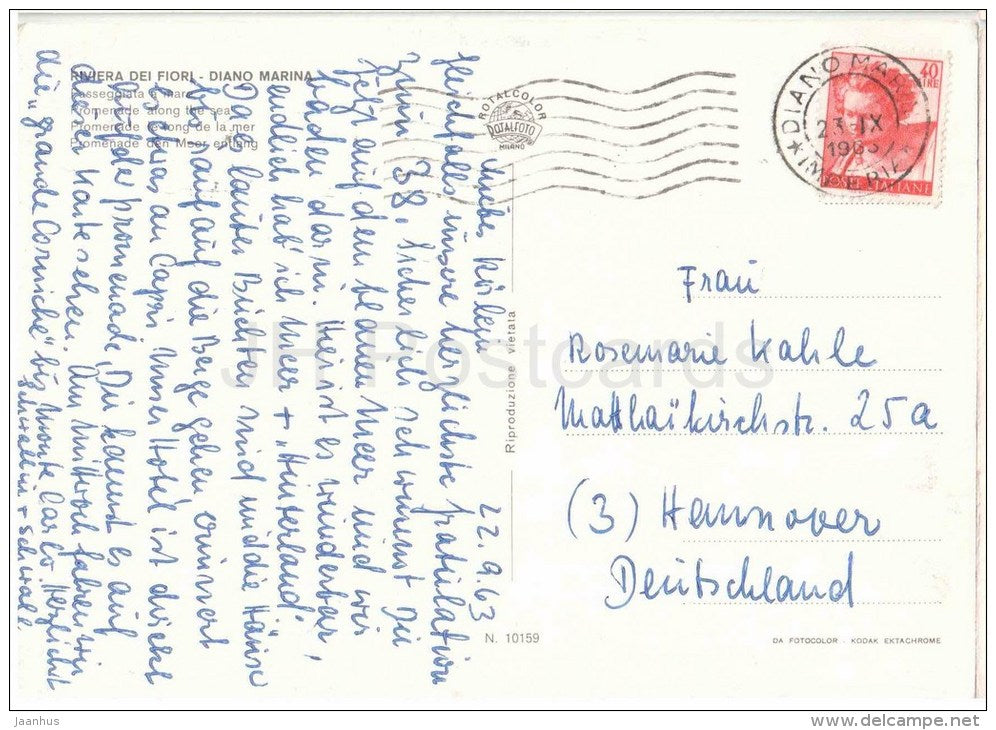 RIVIERA DEI FIORI - DIANO MARINA
Passeggiata a mare
Promenade along the sea
Promenade le long de la mer
Promenade den Meer entlang
ROTALCOLOR
ROTALFOTO
MILANO
DIANO MARINA
23 IX
1963
IMPERIA
40
LIRE
POSTE ITALIANE
22.9.63
gleichfalls unsere herzlichste Gratulation
zum 38. Sicher bist
jetzt auf dem blauen Meer und wir
baden darin. Hier ist es wunderbar,
endlich hab' ich Meer + "Hinterland"
Da lauter Buchten sind und die Häuser
bis rauf auf die Berge gehen erinnert
es etwas an Capri. Unser Hotel ist direkt
an der Promenade, Du kannst es auf
der Karte sehen. Am Mittwoch fahren wir
die "grande Corniche" bis Monte Carlo. Herzlichst
Riproduzione vietata
Frau
Rosemarie Kahle
Matthäikirchstr. 25a
(3) Hannover
Deutschland
N. 10159
DA FOTOCOLOR - KODAK EKTACHROME
JH Postcards
Jaanhus
www.delcampe.net